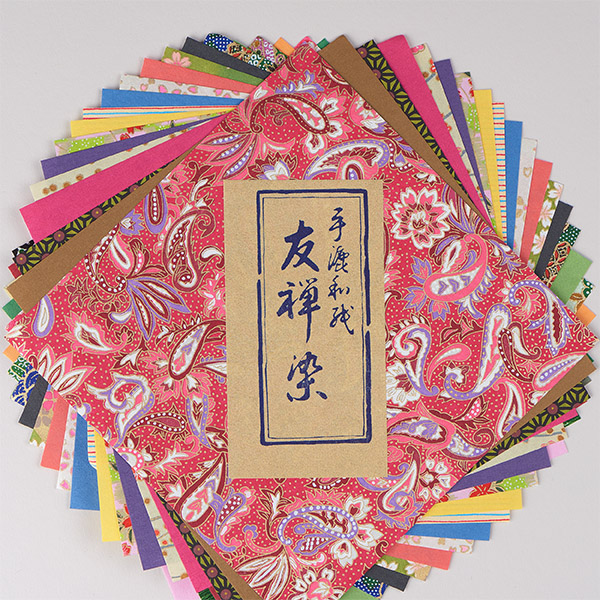 手漉和紙
友禅染